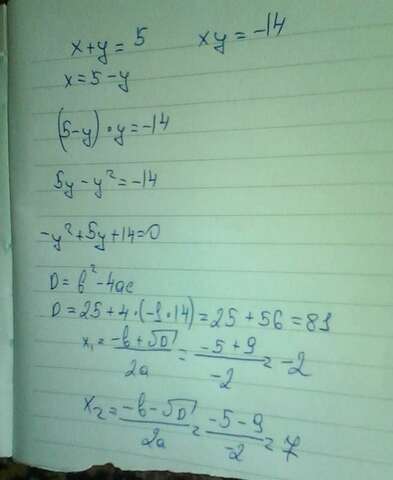 x+y=5 xy=-14
x=5-y
(5-y)·y=-14
5y-y²=-14
-y²+5y+14=0
D=b²-4ac
D=25+4·(-1·14)=25+56=81
x₁=(-b+√D)/2a=(-5+9)/-2=-2
x₂=(-b-√D)/2a=(-5-9)/-2=7